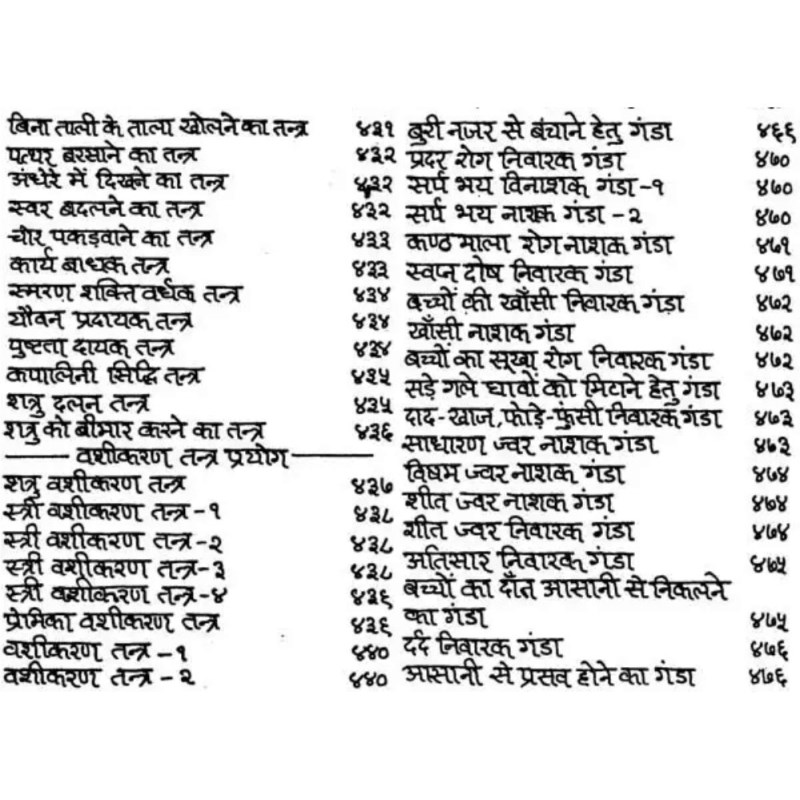 बिना ताली के ताला खोलने का तन्त्र ४३१
पत्थर बरसाने का तन्त्र ४३२
अंधेरे में दिखने का तन्त्र ४३२
स्वर बदलने का तन्त्र ४३२
चोर पकड़वाने का तन्त्र ४३३
कार्य बाधक तन्त्र ४३३
स्मरण शक्ति वर्धक तन्त्र ४३४
यौवन प्रदायक तन्त्र ४३४
पुष्टता दायक तन्त्र ४३४
कपालिनी सिद्धि तन्त्र ४३५
शत्रु दलन तन्त्र ४३५
शत्रु को बीमार करने का तन्त्र ४३६
वशीकरण तन्त्र प्रयोग
शत्रु वशीकरण तन्त्र ४३७
स्त्री वशीकरण तन्त्र-१ ४३८
स्त्री वशीकरण तन्त्र-२ ४३८
स्त्री वशीकरण तन्त्र-३ ४३८
स्त्री वशीकरण तन्त्र-४ ४३६
प्रेमिका वशीकरण तन्त्र ४३६
वशीकरण तन्त्र -१ ४४०
वशीकरण तन्त्र - २ ४४०
बुरी नजर से बचाने हेतु गंडा ४६६
प्रदर रोग निवारक गंडा ४७०
सर्प भय विनाशक गंडा -१ ४७०
सर्प भय नाशक गंडा -२ ४७०
कण्ठ माला रोग नाशक गंडा ४७१
स्वप्न दोष निवारक गंडा ४७१
बच्चों की खाँसी निवारक गंड़ा ४७२
खाँसी नाशक गंडा ४७२
बच्चों का सूखा रोग निवारक गंडा ४७२
सड़े गले घावों को मिटाने हेतु गंडा ४७३
दाद-खाज, फोड़े-फुंसी निवारक गंडा ४७३
साधारण ज्वर नाशक गंडा ४७३
विषम ज्वर नाशक गंडा ४७४
शीत ज्वर नाशक गंडा ४७४
शीत ज्वर निवारक गंडा ४७४
अतिसार निवारक गंडा ४७५
बच्चों का दाँत आसानी से निकलने
का गंडा ४७५
दर्द निवारक गंडा ४७६
आसानी से प्रसव होने का गंडा ४७६